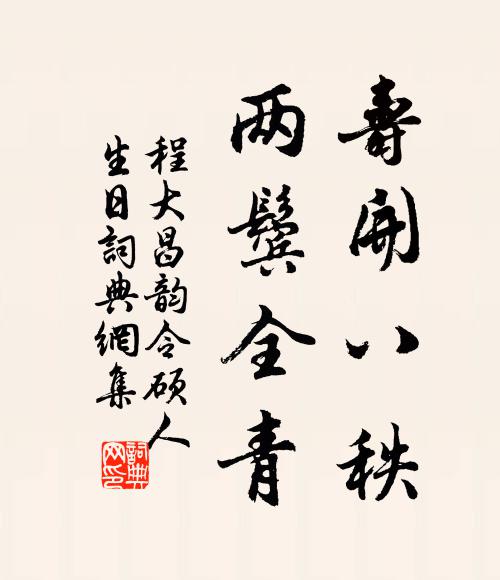 壽開八秩
两鬓全青
程大昌韵令硕人
生日詞典網集
詞典
网印